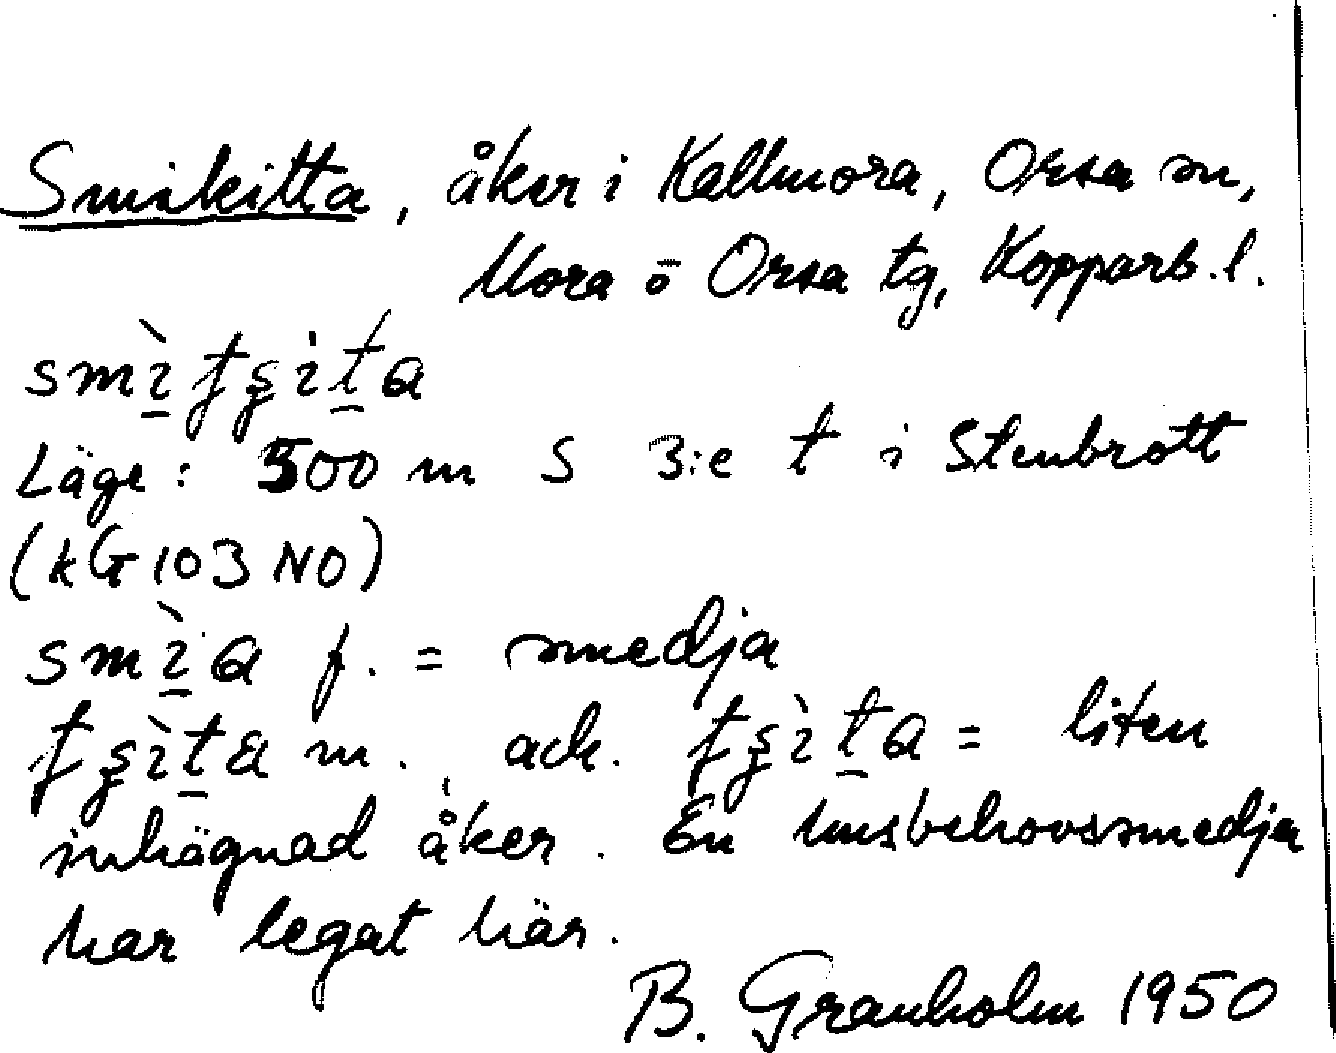 Smikitta, åker i Kallmora, Orsa sn,
Mora o Orsa tg, Kopparb. l.
smìtʂìta
Läge: 500 m S 3:e t i Stenbrott
(kG 103 NO)
smìa f. = smedja
tʂìta m., ack. tʂìta = liten
inhägnad åker. En husbehovssmedja
har legat här.
B. Granholm 1950